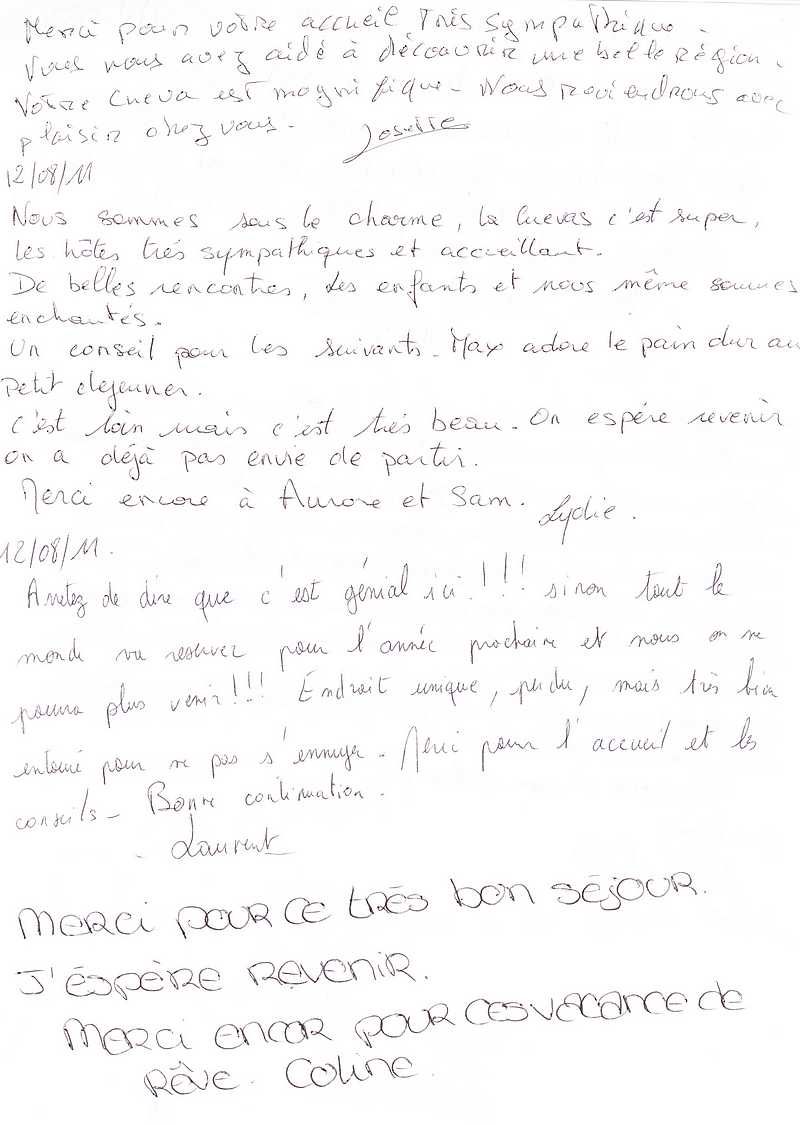 Merci pour votre accueil très sympathique.
Vous nous avez aidé à découvrir une belle région.
Votre Cueva est magnifique - Nous reviendrons avec
plaisir chez vous. Josette
12/08/11
Nous sommes sous le charme, la Cuevas c'est super,
les hôtes très sympathiques et accueillant.
De belles rencontres, les enfants et nous même sommes
enchantés.
Un conseil pour les suivants. Max adore le pain dur au
Petit dejeuner.
C'est loin mais c'est très beau. On espère revenir
on a déjà pas envie de partir.
Merci encore à Aurore et Sam. Lydie.
12/08/11.
Arretez de dire que c'est génial ici!!! sinon tout le
monde va reserver pour l'année prochaine et nous on ne
pourra plus venir!!! Endroit unique, perdu, mais très bien
entouré pour ne pas s'ennuyer. Merci pour l'accueil et les
conseils - Bonne continuation.
Laurent
Merci pour ce très bon séjour.
J'éspère revenir.
Merci encor pour ces vacance de
rêve. Coline.